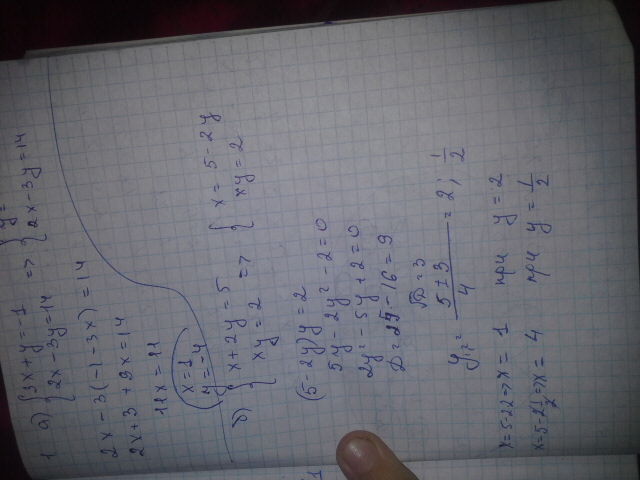 1 а) { 3x + y = -1 => { y =
{ 2x - 3y = 14 { 2x - 3y = 14
2x - 3(-1 - 3x) = 14
2x + 3 + 9x = 14
11x = 11
x = 1
y = -4
б) { x + 2y = 5 => { x = 5 - 2y
{ xy = 2 { xy = 2
(5 - 2y)y = 2
5y - 2y² - 2 = 0
2y² - 5y + 2 = 0
D = 25 - 16 = 9
√D = 3
y₁,₂ = (5 ± 3)/4 = 2; 1/2
x = 5 - 2·2 => x = 1 при y = 2
x = 5 - 2·1/2 => x = 4 при y = 1/2